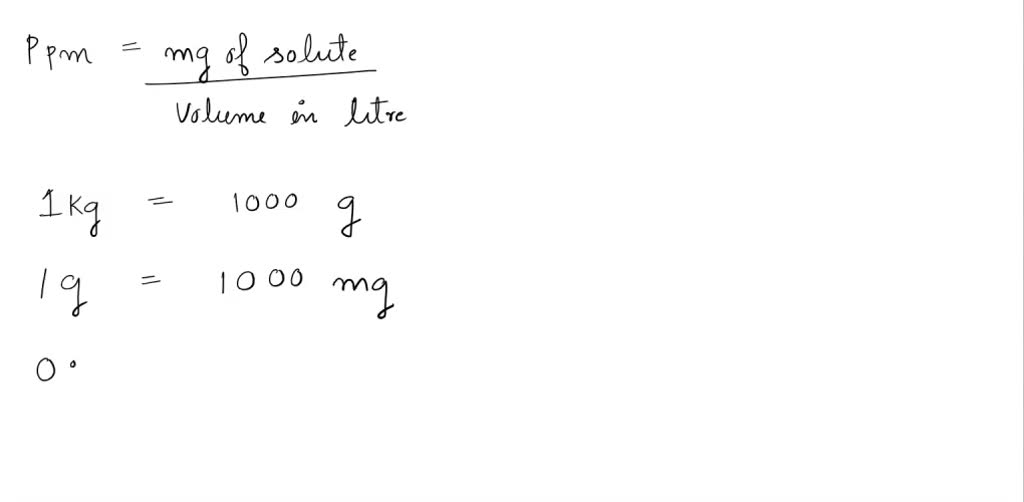 Ppm = mg of solute
Volume in litre
1 Kg = 1000 g
1 g = 1000 mg
0.